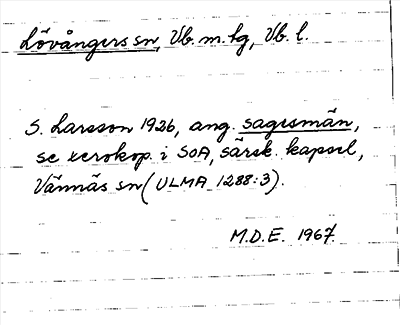 Lövångers sn, Vb. m. hg, Vb. l.
S. Larsson 1926, ang. sagesmän,
se xerokop. i SOA, särsk. kapsel,
Vännäs sn (ULMA 1288:3).
M.D.E. 1967.